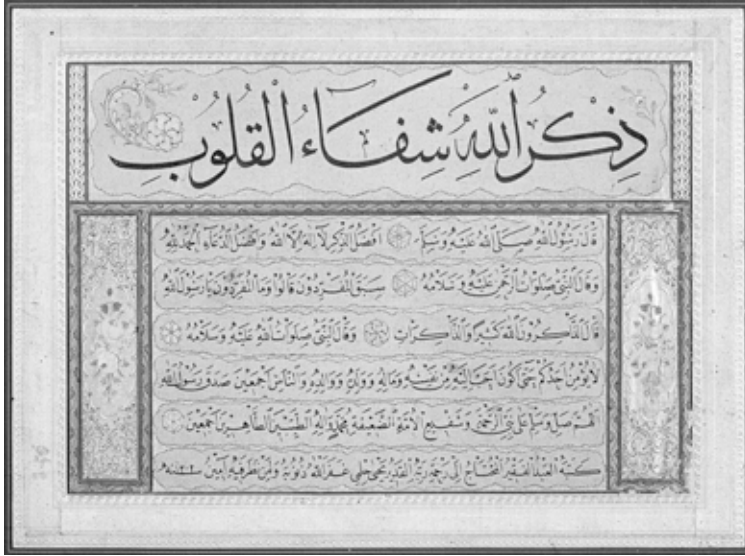 ذِكْرُ اللّٰهِ شِفَاءُ القُلُوبِ
قال رسول الله صلى الله عليه وسلم افضل الذكر لا اله الا الله وافضل الدعاء الحمد لله
وقال النبي صلوات الرحمن عليه وسلامه سبق المفردون قالوا وما المفردون يا رسول الله
قال الذاكرون الله كثيرا والذاكرات وقال النبي صلوات الله عليه وسلامه
لا يؤمن احدكم حتى اكون احب اليه من نفسه وماله وولده ووالده والناس اجمعين صدق رسول الله
اللهم صل وسلم على نبي الرحمة وشفيع الامة الضعيفة محمد وآله الطيبين الطاهرين اجمعين
كتبه العبد الفقير المحتاج الى رحمة ربه القدير يحيى حلمي غفر الله ذنوبه ولمن نظر فيه آمين